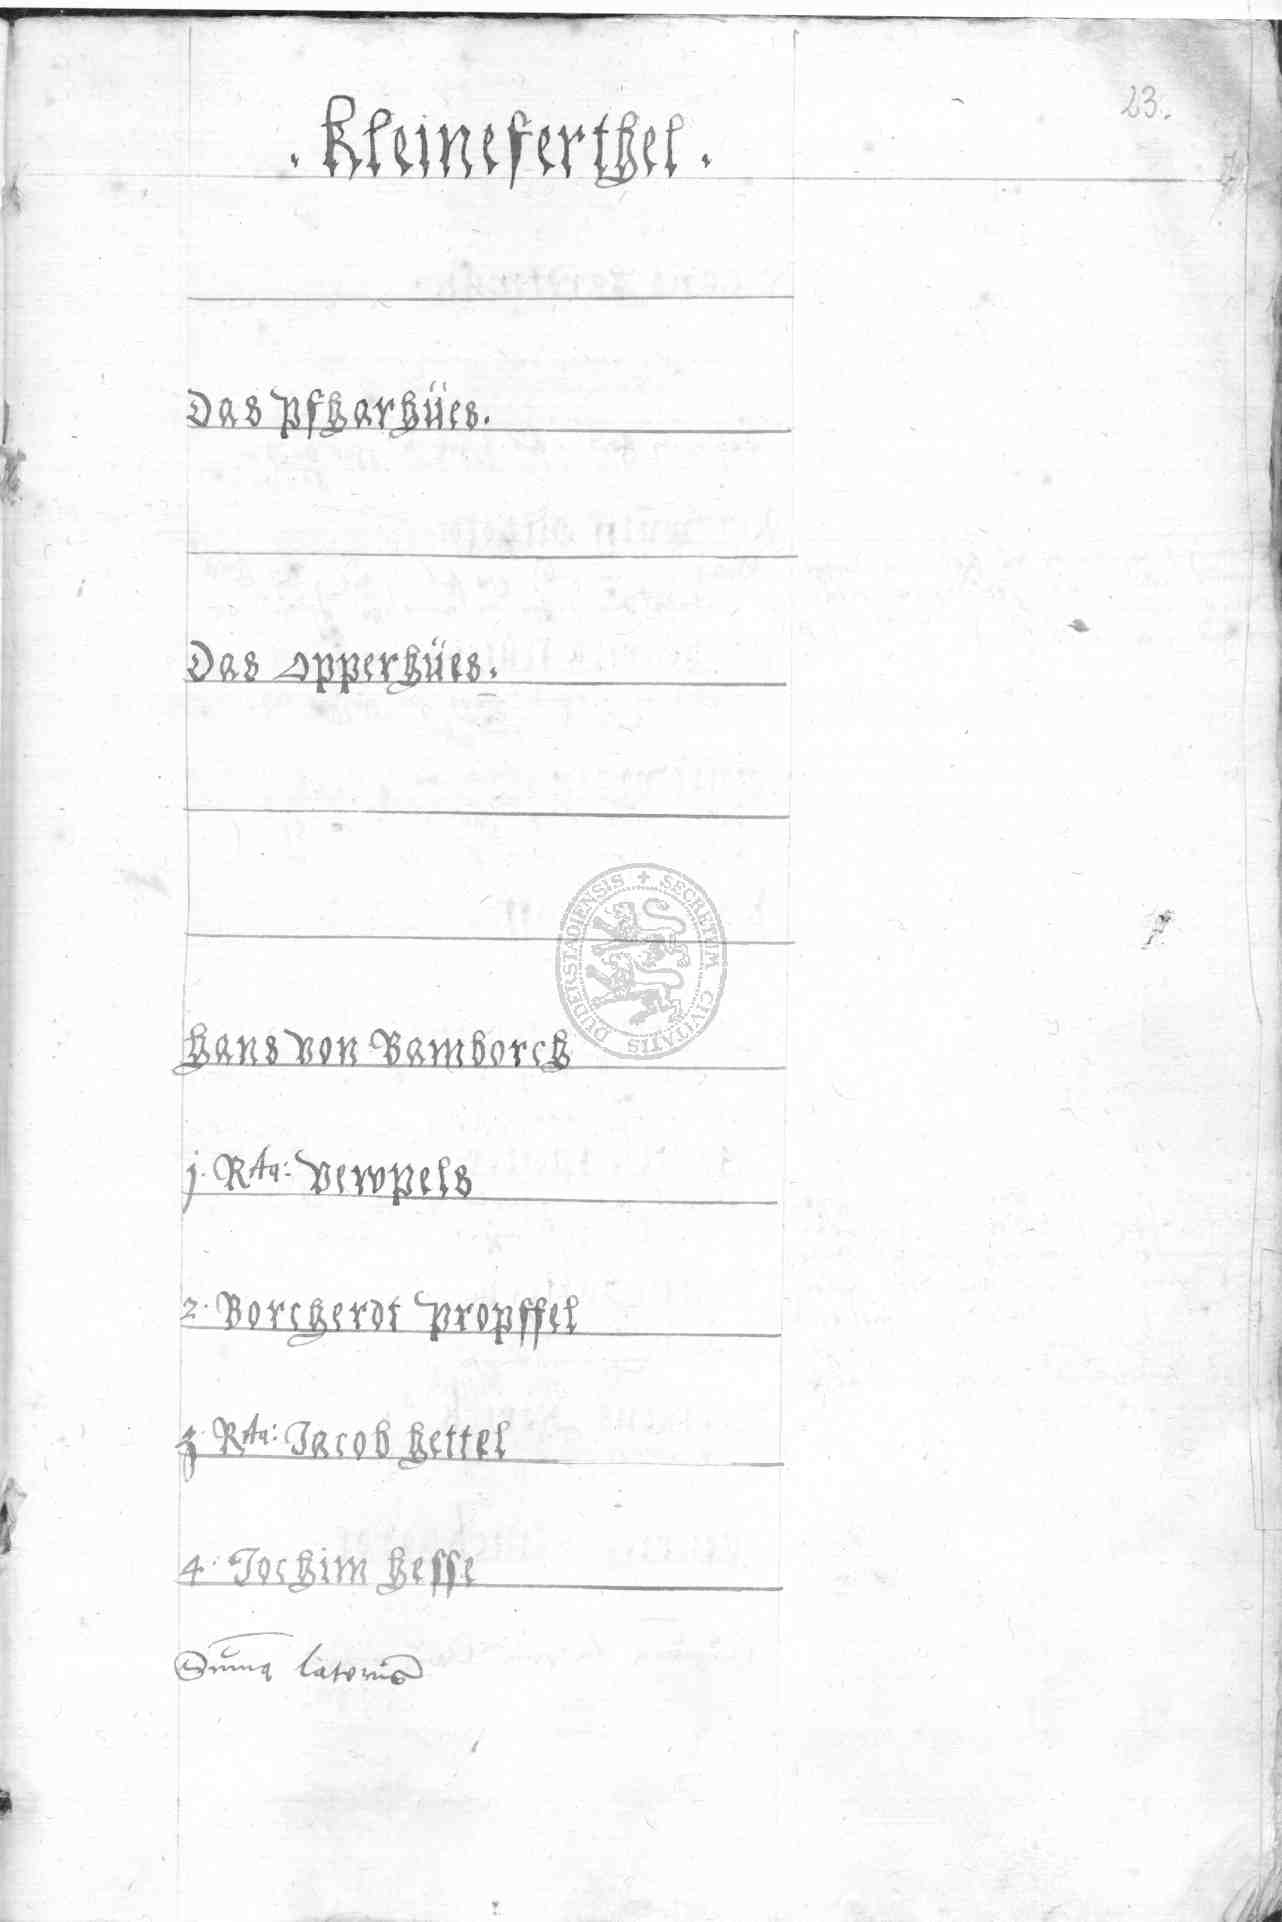 23.
. Kleineferthel .
Das Pfharhües.
Das Opperhües.
Hans von Bamborch
j. Rta: Vewpels
2. Borcherdt Propffel
3. Rta: Jacob Hettel
4. Jochim Hesse
Suma lateris
SECRETUM CIVITATIS DUDERSTADIENSIS